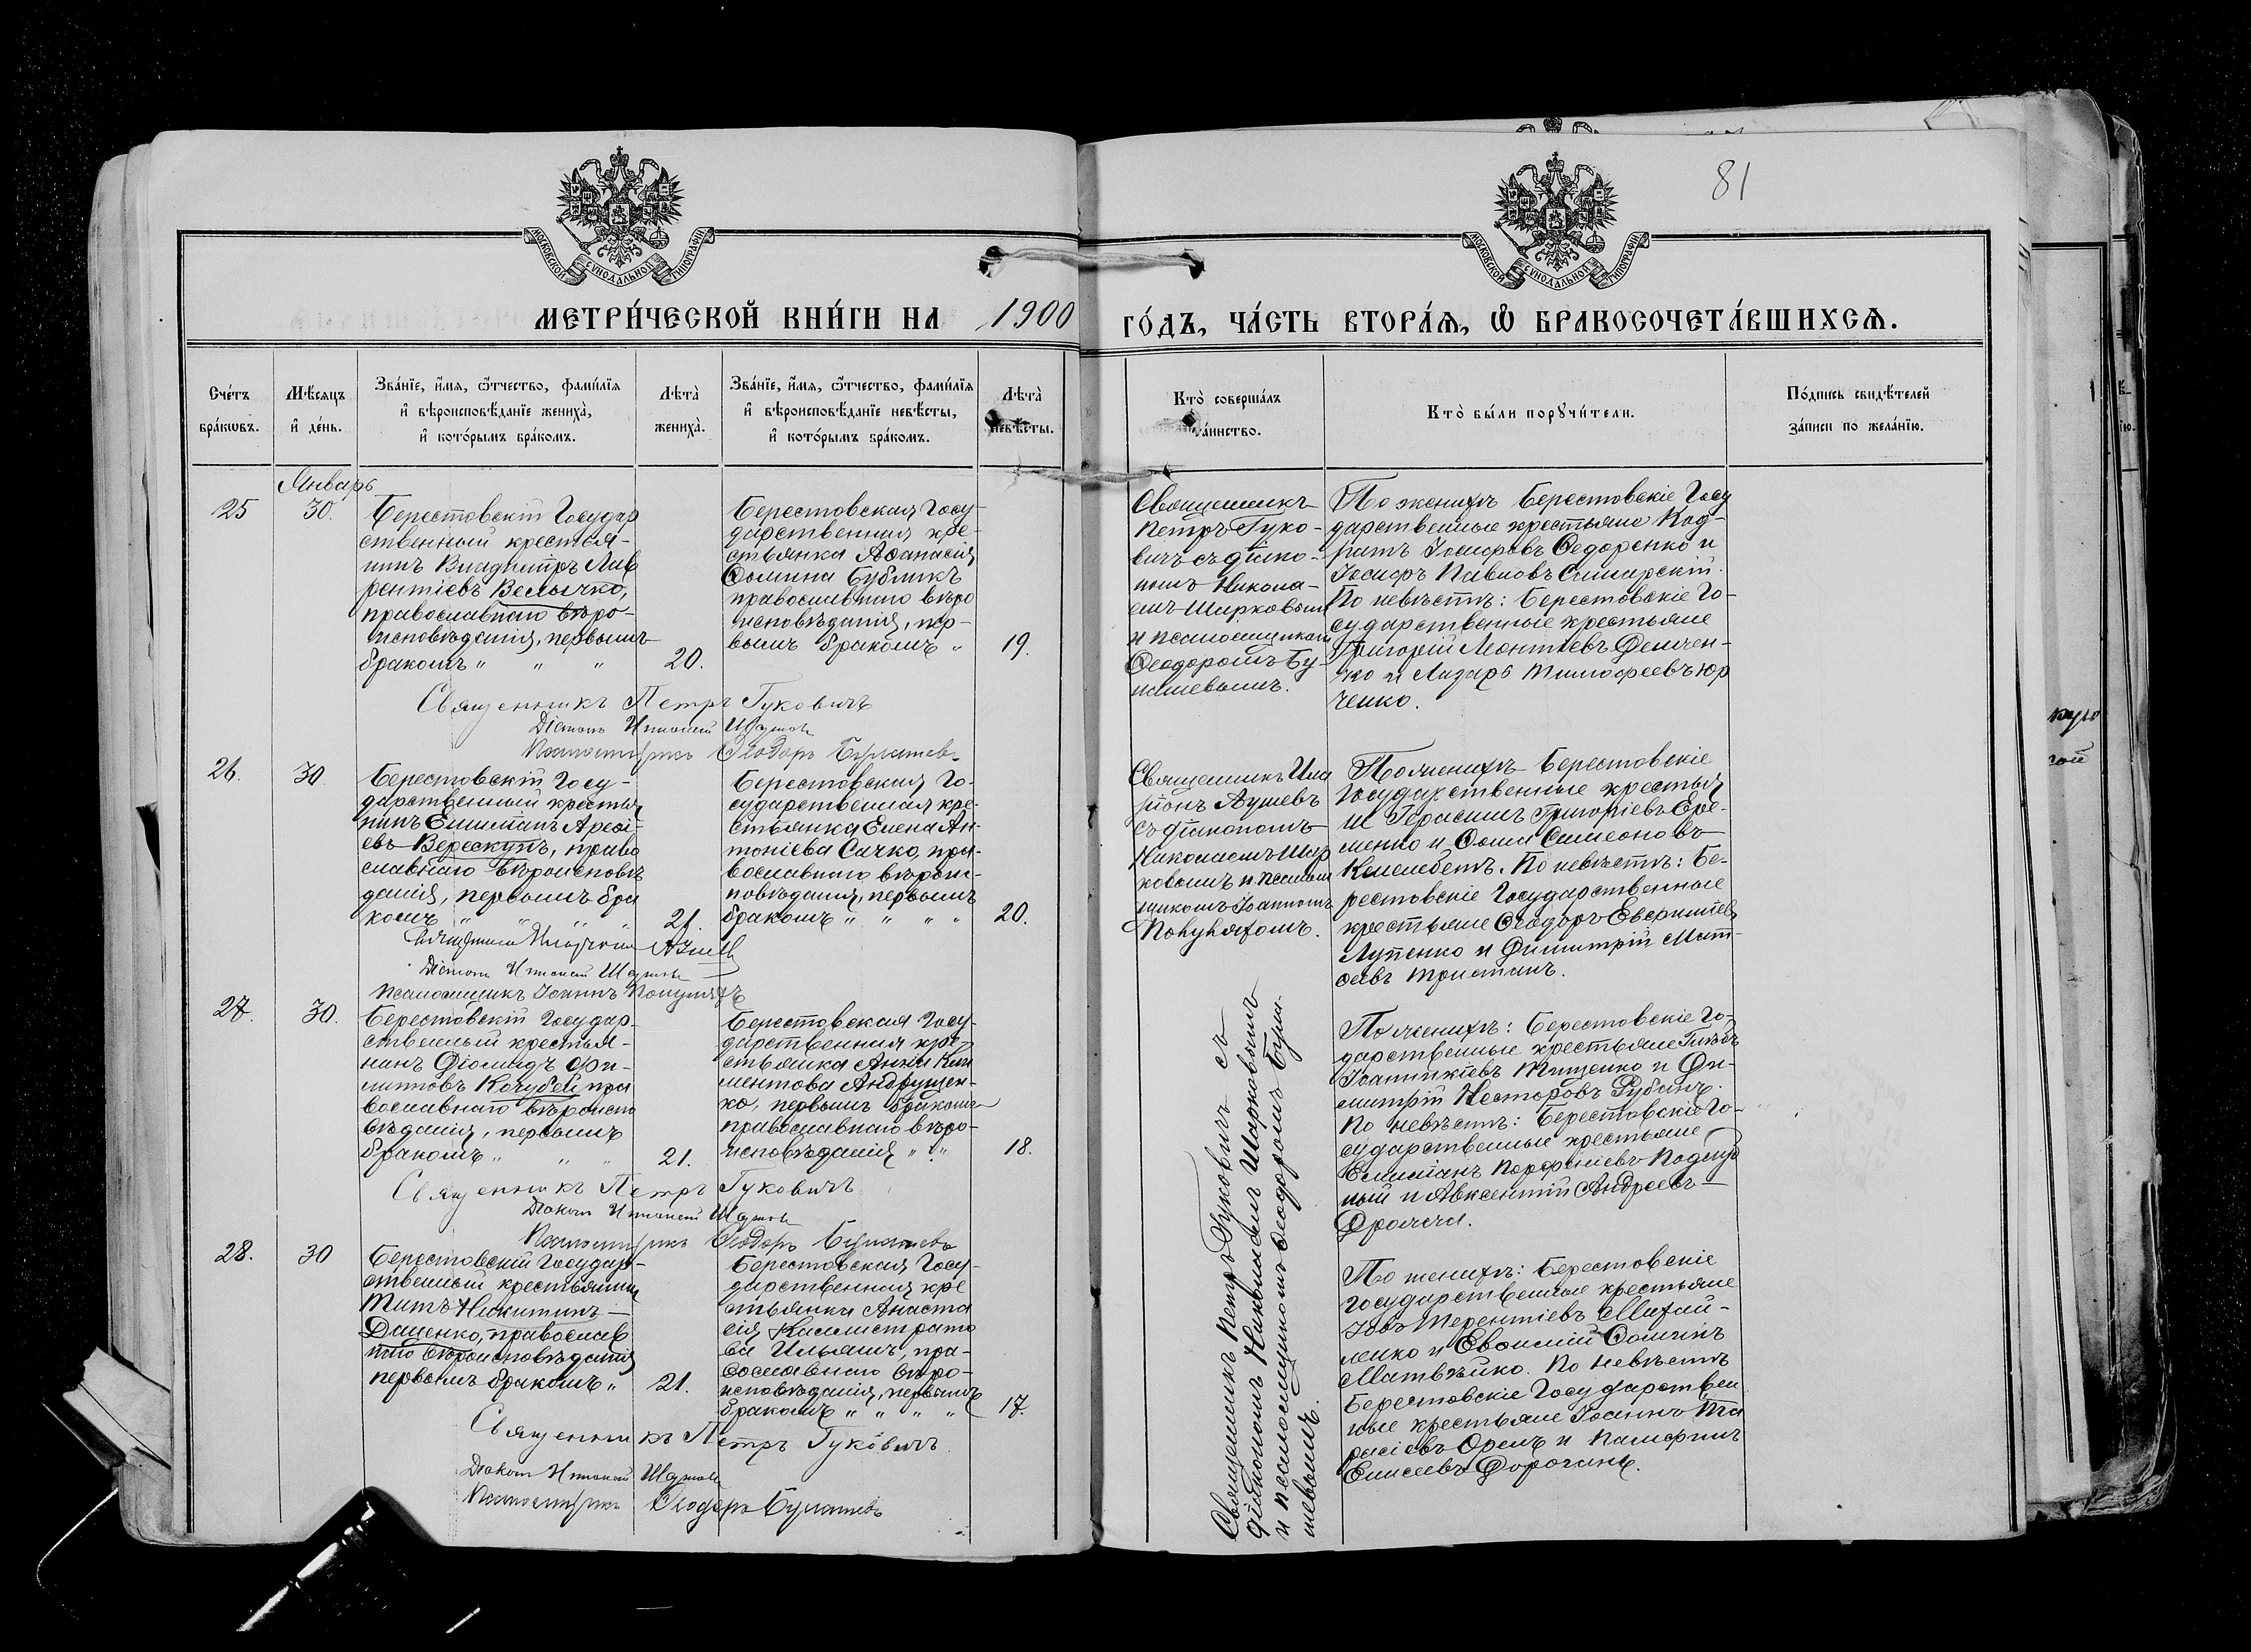 81
МОСКОВСКОЙ СУНОДАЛЬНОЙ ТИПОГРАФІИ
МОСКОВСКОЙ СУНОДАЛЬНОЙ ТИПОГРАФІИ
МЕТРИ́ЧЕСКОЙ КНИ́ГИ НА 1900
ГО́ДЪ, ЧА́СТЬ ВТОРА́Я, Ѽ БРАКОСОЧЕТА́ВШИХСЯ.
Сче́тъ
бра́кѡвъ.
Мѣ́сяцъ
и҆ де́нь.
Зва́нїе, и҆́мя, ѻ҆́тчество, фами́лїя
и҆ вѣроисповѣ́данїе жениха̀,
и҆ кото́рымъ бра́комъ.
Лѣта̀
жениха̀.
Зва́нїе, и҆́мя, ѻ҆́тчество, фами́лїя
и҆ вѣроисповѣ́данїе невѣ́сты,
и҆ кото́рымъ бра́комъ.
Лѣта̀
невѣ́сты.
Кто̀ соверша́лъ
та́инство.
Кто̀ бы́ли порꙋчи́тели.
По́дпись свидѣ́телей
за́писи по жела́нїю.
Январь
25
30.
Берестовскій Государ
ственный крестья-
нинъ Владиміръ Лав
рентіевъ Велычко,
православнаго вѣро-
исповѣданія, первымъ
бракомъ " " "
20.
Берестовская Госу-
дарственная кре-
стьянка Аѳанасія
Ѳомина Бубликъ
православнаго вѣро
исповѣданія, пер-
вымъ бракомъ "
19.
Священникъ
Петръ Гуко-
вичъ съ діако-
номъ Никола-
емъ Шарковымъ
и псаломщикомъ
Ѳеодоромъ Бу-
По женихѣ Берестовскіе Госу
дарственные крестьяне Код-
ратъ Іосифовъ Ѳедоренко и
Іосифъ Павловъ
По невѣстѣ: Берестовскіе Го-
сударственные крестьяне
Григорій Леонтіевъ Демчен-
ко и Лазарь Тимофеевъ Юр
ченко.
Священникъ Петръ Гуковичъ
Діаконъ Николай
Псаломщикъ Ѳеодоръ
26.
30.
Берестовскій Госу-
дарственный крестья
нинъ Емиліанъ
евъ Верескунъ, право
славнаго вѣроисповѣ
данія, первымъ бра
комъ " " "
21.
Берестовская Го-
сударственная кре-
стьянка Елена Ан-
тоніева Сачко, пра-
вославнаго вѣроис-
повѣданія, первымъ
бракомъ " " " "
20.
Священникъ Ила
ріонъ
съ діакономъ
Николаемъ Шар
ковымъ и псалом
щикомъ Іоанномъ
По женихѣ Берестовскіе
Государственные крестья
не Герасимъ Григоріевъ Ере-
менко и Ѳома Симеоновъ
По невѣстѣ: Бе-
рестовскіе Государственные
крестьяне Ѳеодоръ
Лупенко и Димитрій Мат-
ѳевъ Тристанъ.
Діаконъ Николай
Псаломщикъ Іоаннъ
27.
30.
Берестовскій Государ-
ственный крестья-
нинъ Діомидъ Фи-
липповъ Кочубей пра
вославнаго вѣроиспо
вѣданія, первымъ
бракомъ " " "
21.
Берестовская Госу-
дарственная кре-
стьянка Анна Кли
ментова Андрущен-
ко, первымъ бракомъ
православнаго вѣро-
исповѣданія " "
18.
По женихѣ: Берестовскіе Го-
дарственные крестьяне Глѣбъ
Іоанникіевъ Тищенко и Ди-
митрій Несторовъ Рубанъ.
По невѣстѣ: Берестовскіе Го-
сударственные крестьяне
Емиліанъ Порфиріевъ
и Авксентій Андреевъ
Священникъ Петръ Гуковичъ
Діаконъ Николай
Псаломщикъ Ѳеодоръ
28.
30
Берестовскій Государ-
ственный крестьянинъ
Титъ Никитинъ
Даценко, православ
наго вѣроисповѣданія
первымъ бракомъ "
21.
Берестовская Госу-
дарственная кре
стьянка Анаста
сія Каллистрато
ва Ильяшъ, пра-
вославнаго вѣро-
исповѣданія, первымъ
бракомъ " " " "
17.
Священникъ Петръ Гуковичъ съ
діакономъ Николаемъ Шарковымъ
и псаломщикомъ Ѳеодоромъ
По женихѣ: Берестовскіе
Государственные крестьяне
Іовъ Терентіевъ Михай-
ленко и Евѳимій Ѳоминъ
Матвѣйко. По невѣстѣ
Берестовскіе Государствен
ные крестьяне Іоаннъ Та
расіевъ Орелъ и Памфилъ
Елисеевъ
Священникъ Петръ Гуковичъ
Діаконъ Николай
Псаломщикъ Ѳеодоръ